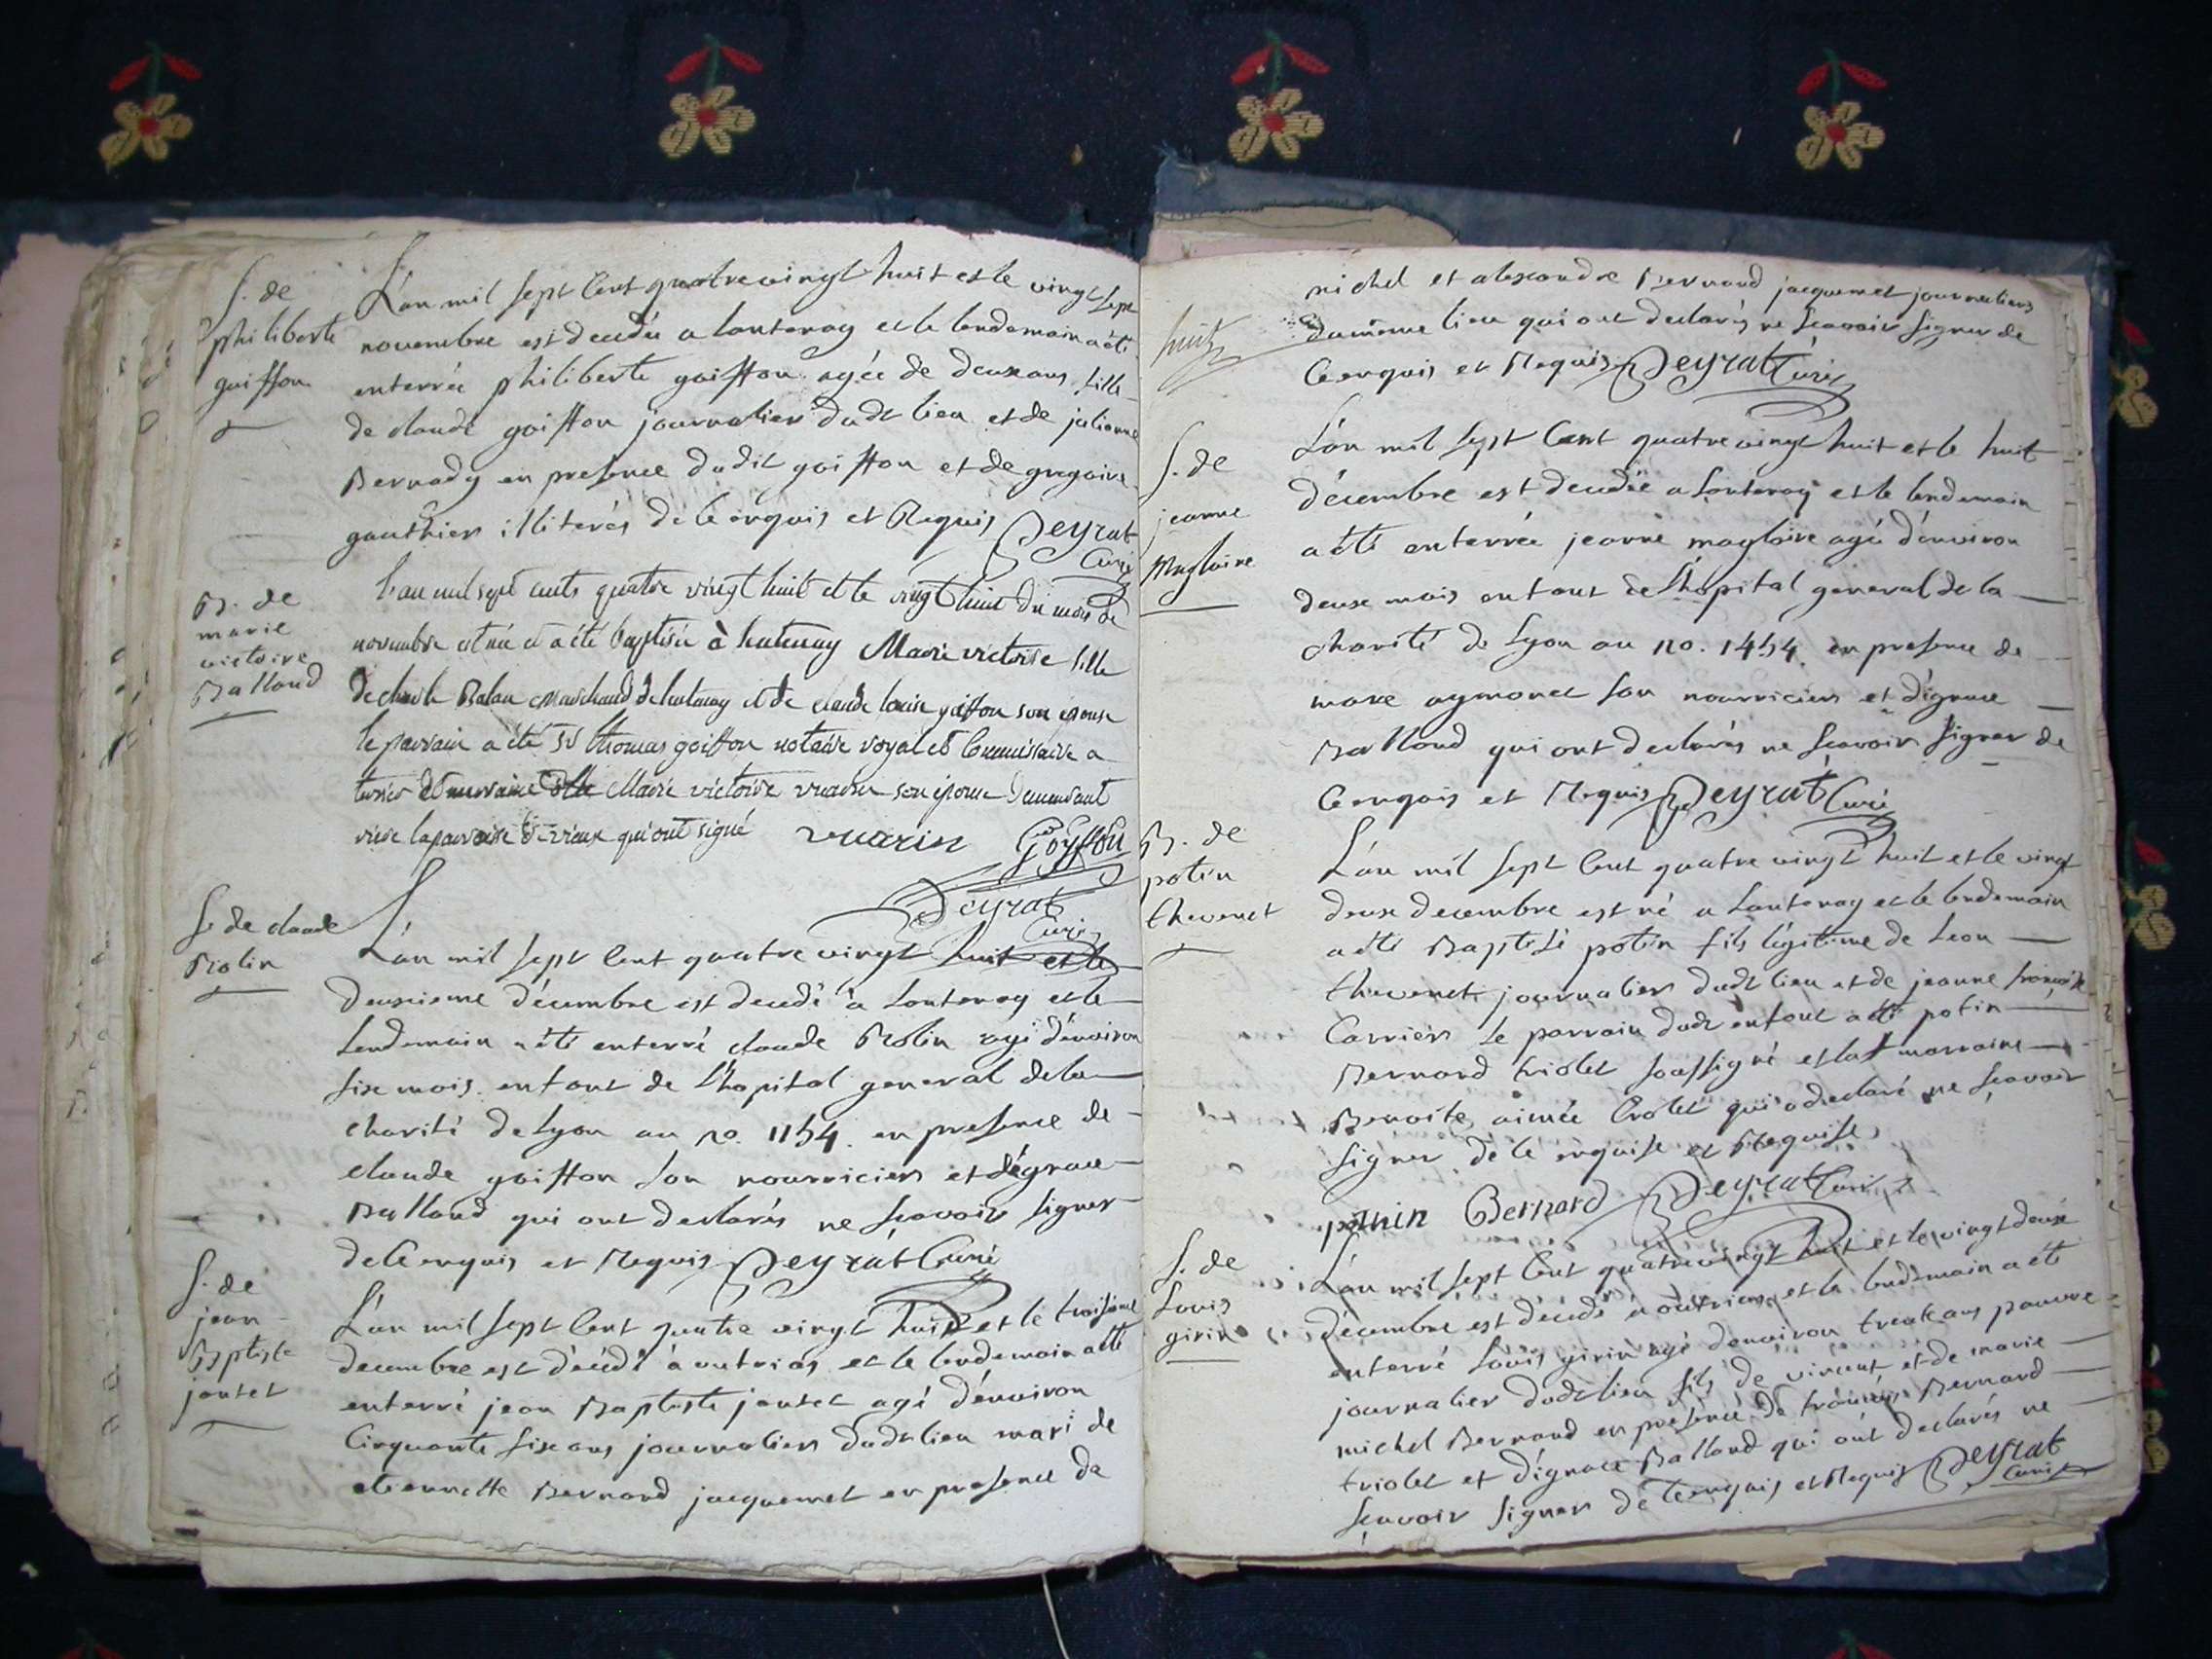 S. de
philiberte
goiffon
L'an mil sept cent quatre vingt huit et le vingt sept
novembre est decedée a lantenay et le lendemain a été
enterrée philiberte goiffon agée de deux ans fille
de claude goiffon journalier dudt lieu et de julienne
Bernady en presence dudit goiffon et de gregoire
gauthier illiterés de ce enquis et Requis Deyrat
Curé
B. de
marie
victoire
Balland
L'an mil sept cents quatre vingt huit et le vingt huit du mois de
novembre est née et a été baptisée à lantenay Marie victoire fille
de charle Balan marchand de lantenay et de claude louise goiffon son epouse
le parrain a été sr thomas goiffon notaire royal et Commissaire a
terrier et marraine dlle Marie victoire vuarin son épouse demeurant
rière la parroisse de vieux qui ont signé vuarin Goyffon
Deyrat
Curé
S. de claude
Rolin
L'an mil sept cent quatre vingt huit et le
deuxieme décembre est decedé à Lantenay et le
Lendemain a été enterré claude Rolin agé d'environ
six mois enfant de l'hopital general de la
charité de Lyon au no. 1154. en presence de
claude goiffon son nourricier et d'ignace
Balland qui ont declarés ne sçavoir signer
de ce enquis et Requis Deyrat Curé
S. de
jean
Baptiste
jantet
L'an mil sept cent quatre vingt huit et le troisieme
decembre est décédé à outrias et le lendemain a été
enterré jean Baptiste jantet agé d'environ
Cinquante six ans journalier dudt lieu mari de
etiennette Bernard jacquemet en presence de
huit
michel et alexandre Bernard jacquemet journaliers
du même lieu qui ont declarés ne sçavoir signer de
ce enquis et Requis Deyrat Curé
S. de
jeanne
Magloire
L'an mil sept Cent quatre vingt huit et le huit
décembre est decedée a Lantenay et le lendemain
a été enterrée jeanne magloire agé d'environ
deux mois enfant de l'hopital general de la
charité de Lyon au no. 1454. en presence de
marc aymonet son nourricier et d'ignace
Balland qui ont declarés ne sçavoir signer de
ce enquis et Requis Deyrat Curé
B. de
potin
thevenet
L'an mil sept cent quatre vingt huit et le vingt
deux decembre est né a Lantenay et le lendemain
a été Baptisé potin fils légitime de Leon
thevenet journalier dudt lieu et de jeanne françoise
Carrier le parrain dudt enfant a été potin
Bernard triolet soussigné et la marraine
Benoite aimée Crolet qui a declaré ne sçavoir
signer de ce enquise et Requise
pothin Bernard Deyrat Curé
S. de
Louis
girin
L'an mil sept cent quatre vingt huit et le vingt deux
décembre est décedé a outrias et le lendemain a été
enterré Louis girin agé d'environ trente ans pauvre
journalier dudt lieu fils de vincent et de marie
michel Bernard en presence de françois Bernard
triolet et d'ignace Balland qui ont declarés ne
sçavoir signer de ce enquis et Requis Deyrat
Curé